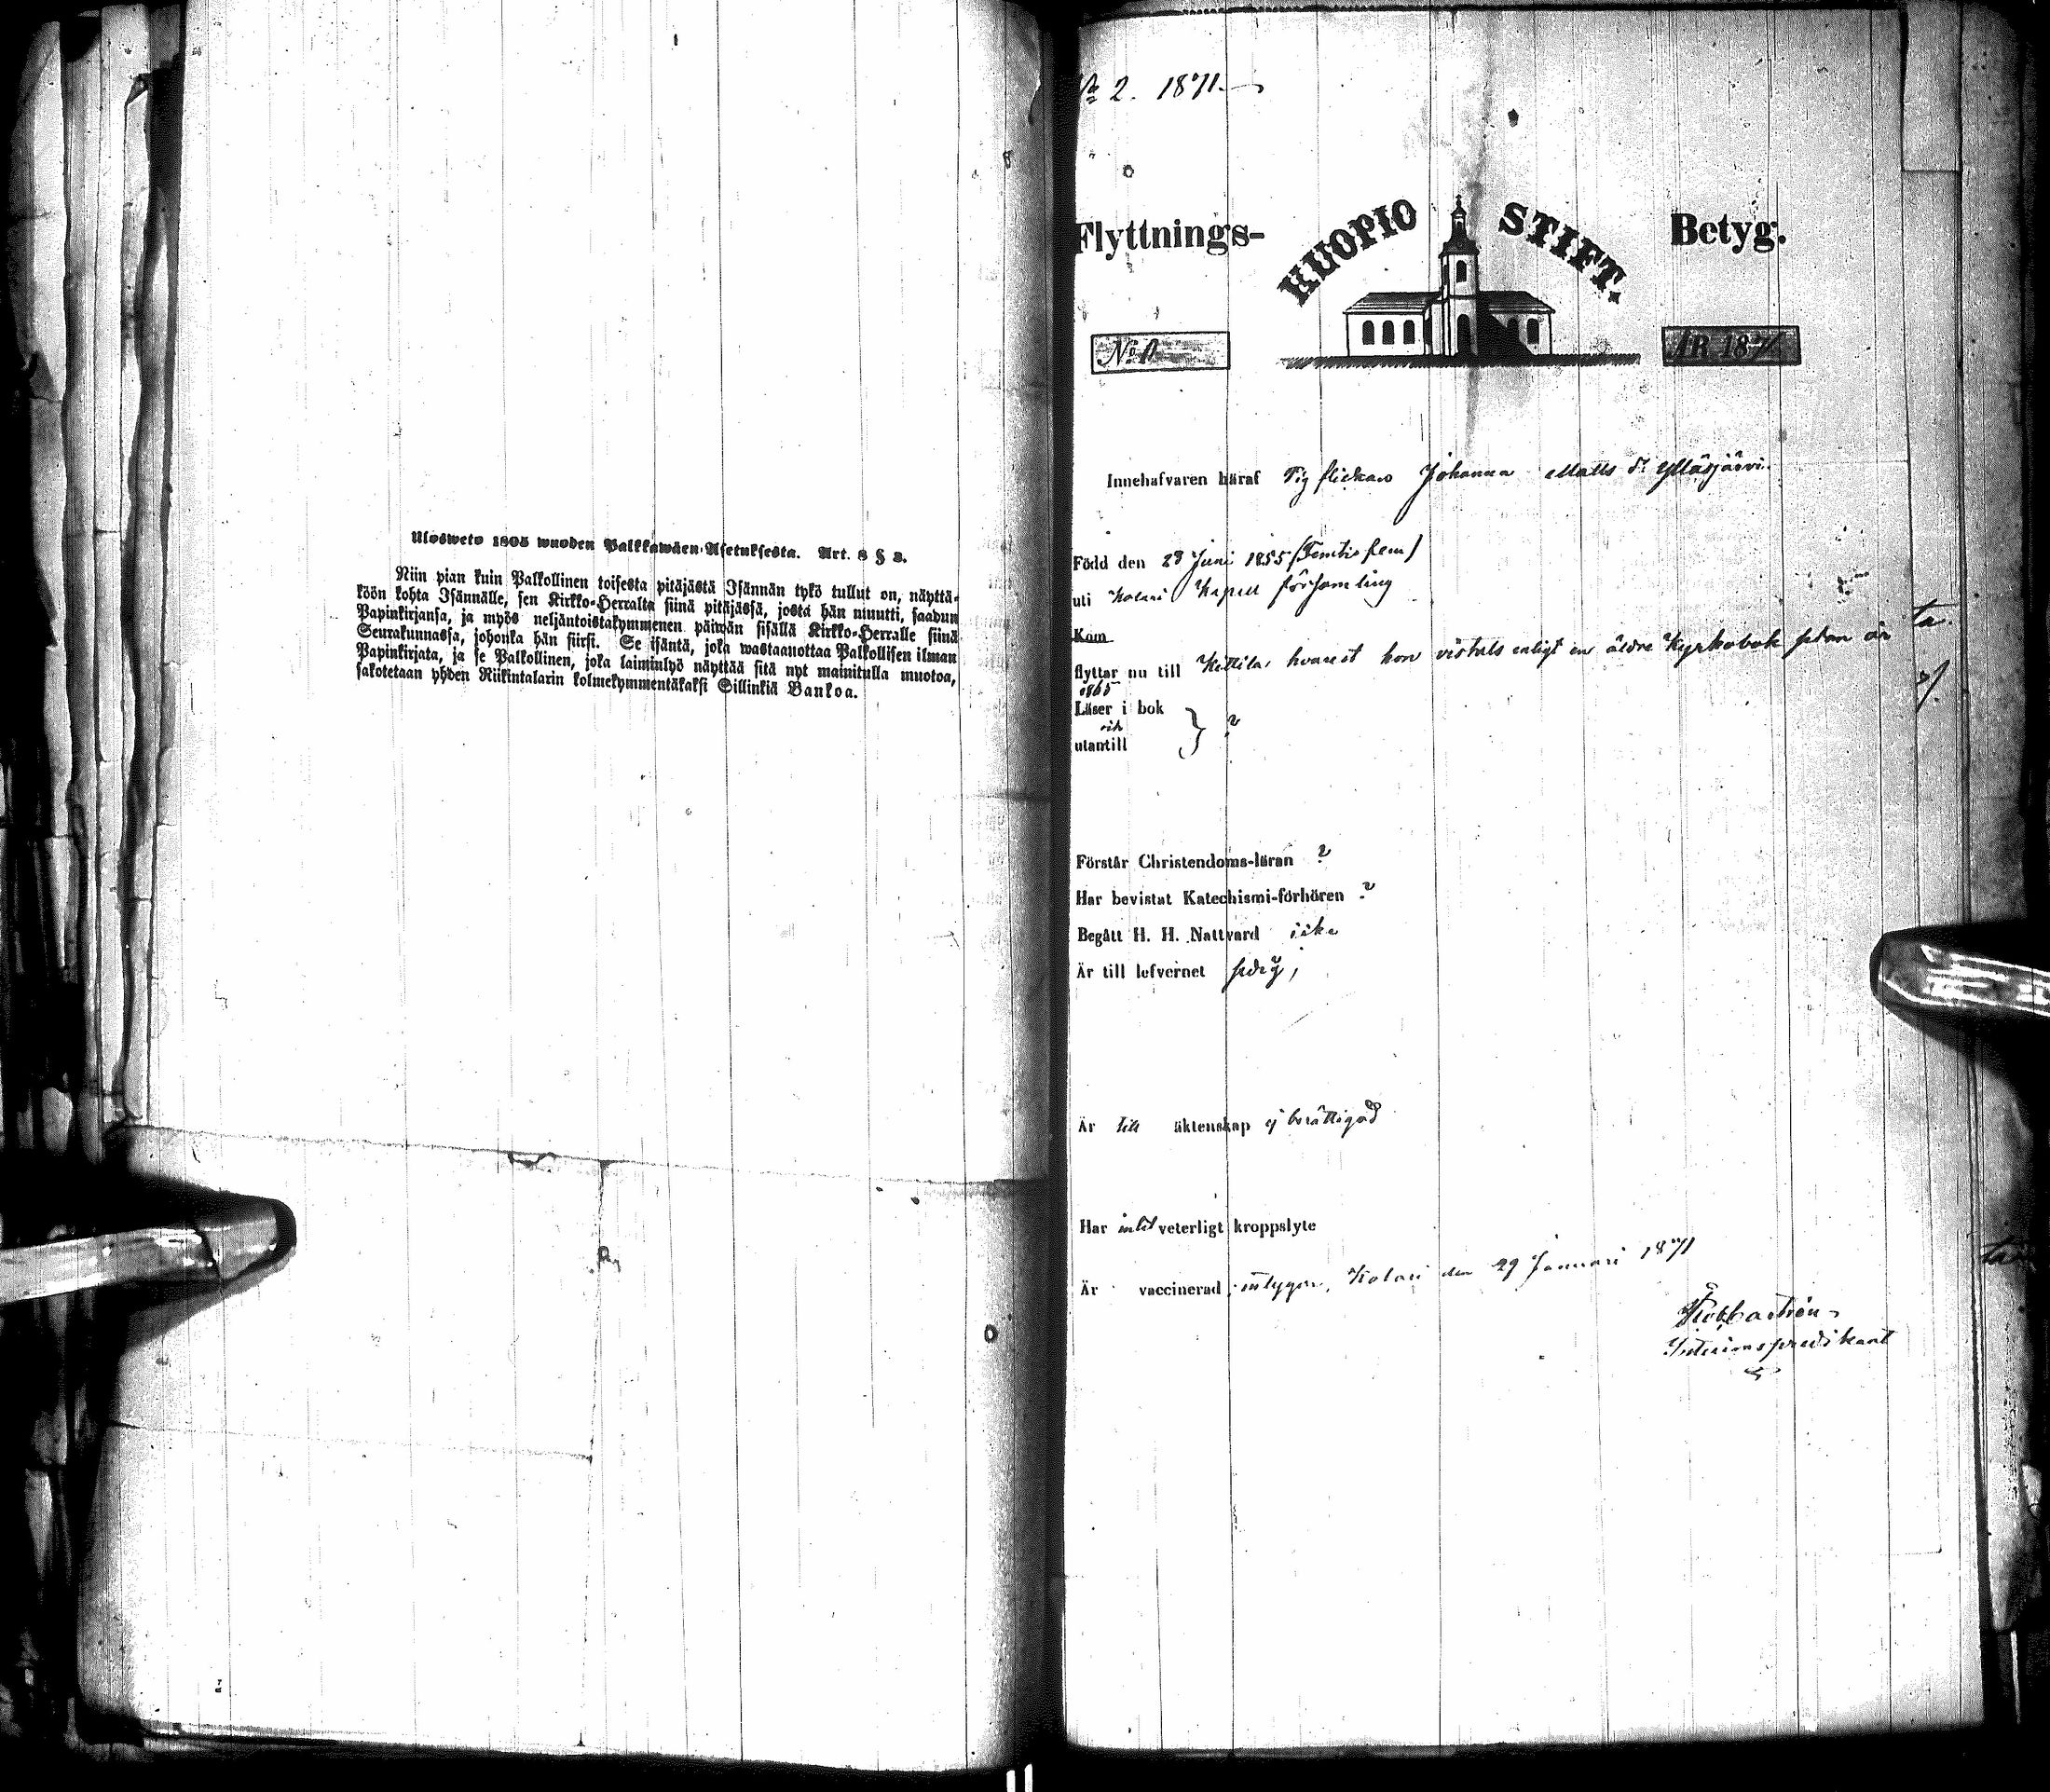 Ulosweto 1805 wuoden Palkkawäen-Asetuksesta. Art. 8 § 3.
Niin pian kuin Palkollinen toisesta pitäjästä Isännän tykö tullut on, näyttä-
köön kohta Isännälle, sen Kirkko-Herralta siinä pitäjässä, josta hän muutti, saadun
Papinkirjansa, ja myös neljäntoistakymmenen päiwän sisällä Kirkko-Herralle siinä
Seurakunnassa, johonka hän siirsi. Se isäntä, joka wastaanottaa Palkollisen ilman
Papinkirjata, ja se Palkollinen, joka laiminlyö näyttää sitä nyt mainitulla muotoa,
sakotetaan yhden Riikintalarin kolmekymmentäkaksi Sillinkiä Bankoa.
№ 2. 1871.
Flyttnings- KUOPIO STIFT. Betyg.
№ ÅR 1871
Innehafvaren häraf Pigflickan Johanna Matts dr Ylläsjärvi
Född den 23 Juni 1855 (Femtio fem)
uti Kolari Kapell församling
Kom
flyttar nu till Kittilä, hvarest hon vistats enligt en äldre Kyrkobok sedan år
1865
Läser i bok
och } ?
utantill
Förstår Christendoms-läran ?
Har bevistat Katechismi-förhören ?
Begått H. H. Nattvard icke
Är till lefvernet sedig,
Är till äktenskap ej berättigad
Har intet veterligt kroppslyte
Är vaccinerad, intygar, Kolari den 29 Januari 1871
Castrén
Interimspredikant